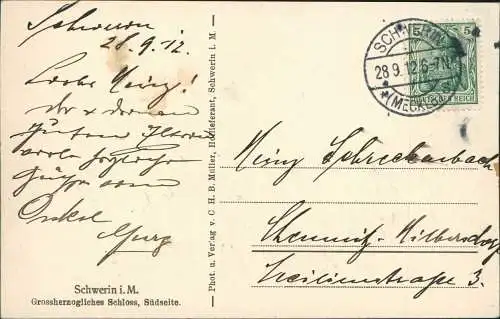 Schwerin
28.9.12.
Liebe Heinz!
Dir u deinen
guten Eltern
viele herzliche
Grüße vom
Onkel
Georg
Schwerin i. M.
Grossherzogliches Schloss, Südseite.
Phot. u. Verlag v. C. H. B. Müller, Hoflieferant, Schwerin i. M.
SCHWERIN
28.9.12.6-7N.
*(MECKLB)
5
DEUTSCHES REICH
Heinz Schreckenbach
Chemnitz-Hilbersdorf
Cäcilienstraße 3.